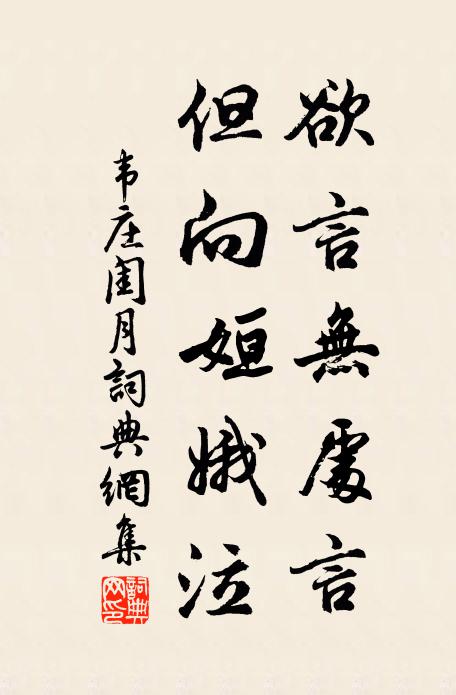 欲言無處言
但向姮娥泣
韦庄闺月詞典網集
詞典网印